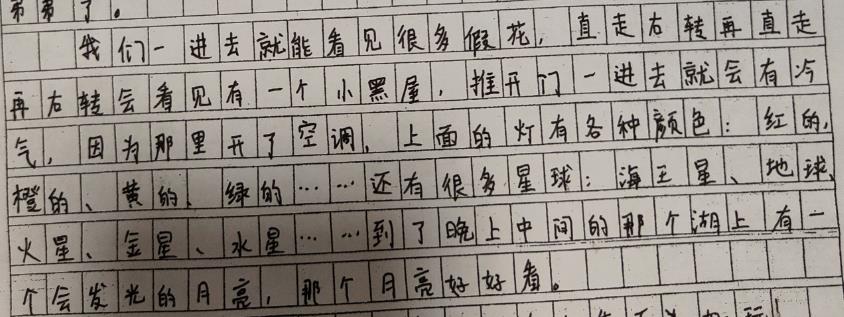 弟弟了。
我们一进去就能看见很多假花,直走右转再直走
再右转会看见有一个小黑屋,推开门一进去就会有冷
气,因为那里开了空调,上面的灯有各种颜色:红的,
橙的、黄的、绿的……还有很多星球:海王星、地球、
火星、金星、水星……到了晚上中间的那个湖上有一
个会发光的月亮,那个月亮好好看。